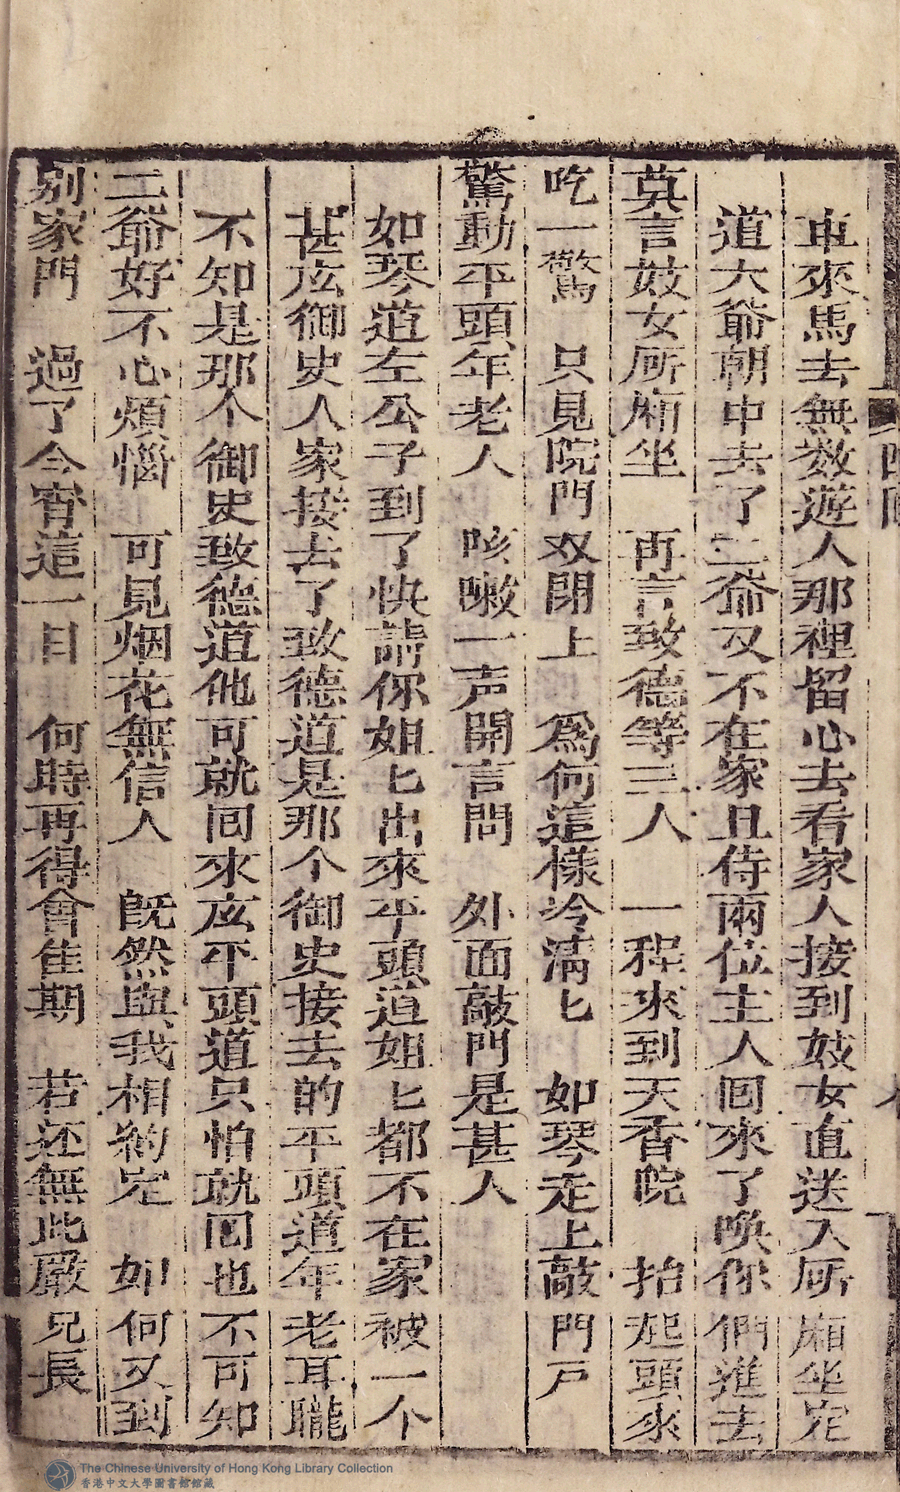 車來馬去無数遊人那裡留心去看家人接到妓女直送入㕔廂坐定
道大爺朝中去了二爺又不在家且待兩位主人囘來了喚你們進去
莫言妓女㕔廂坐　再言致德等三人　一程來到天香院　抬起頭來
吃一驚　只見院門双閉上　爲何這樣冷清匕　如琴走上敲門戸
驚動平頭年老人　咳嗽一声開言問　外面敲門是甚人
如琴道左公子到了快請你姐匕出來平頭道姐匕都不在家被一个
甚庅御史人家接去了致德道是那个御史接去的平頭道年老耳聾
不知是那个御史致德道他可就囘來庅平頭道只怕就囘也不可知
二爺好不心煩惱　可見烟花無信人　既然與我相約定　如何又到
别家門　過了今宵這一目　何時再得會隹期　若还無此嚴兄長
The Chinese University of Hong Kong Library Collection
香港中文大學圖書館館藏